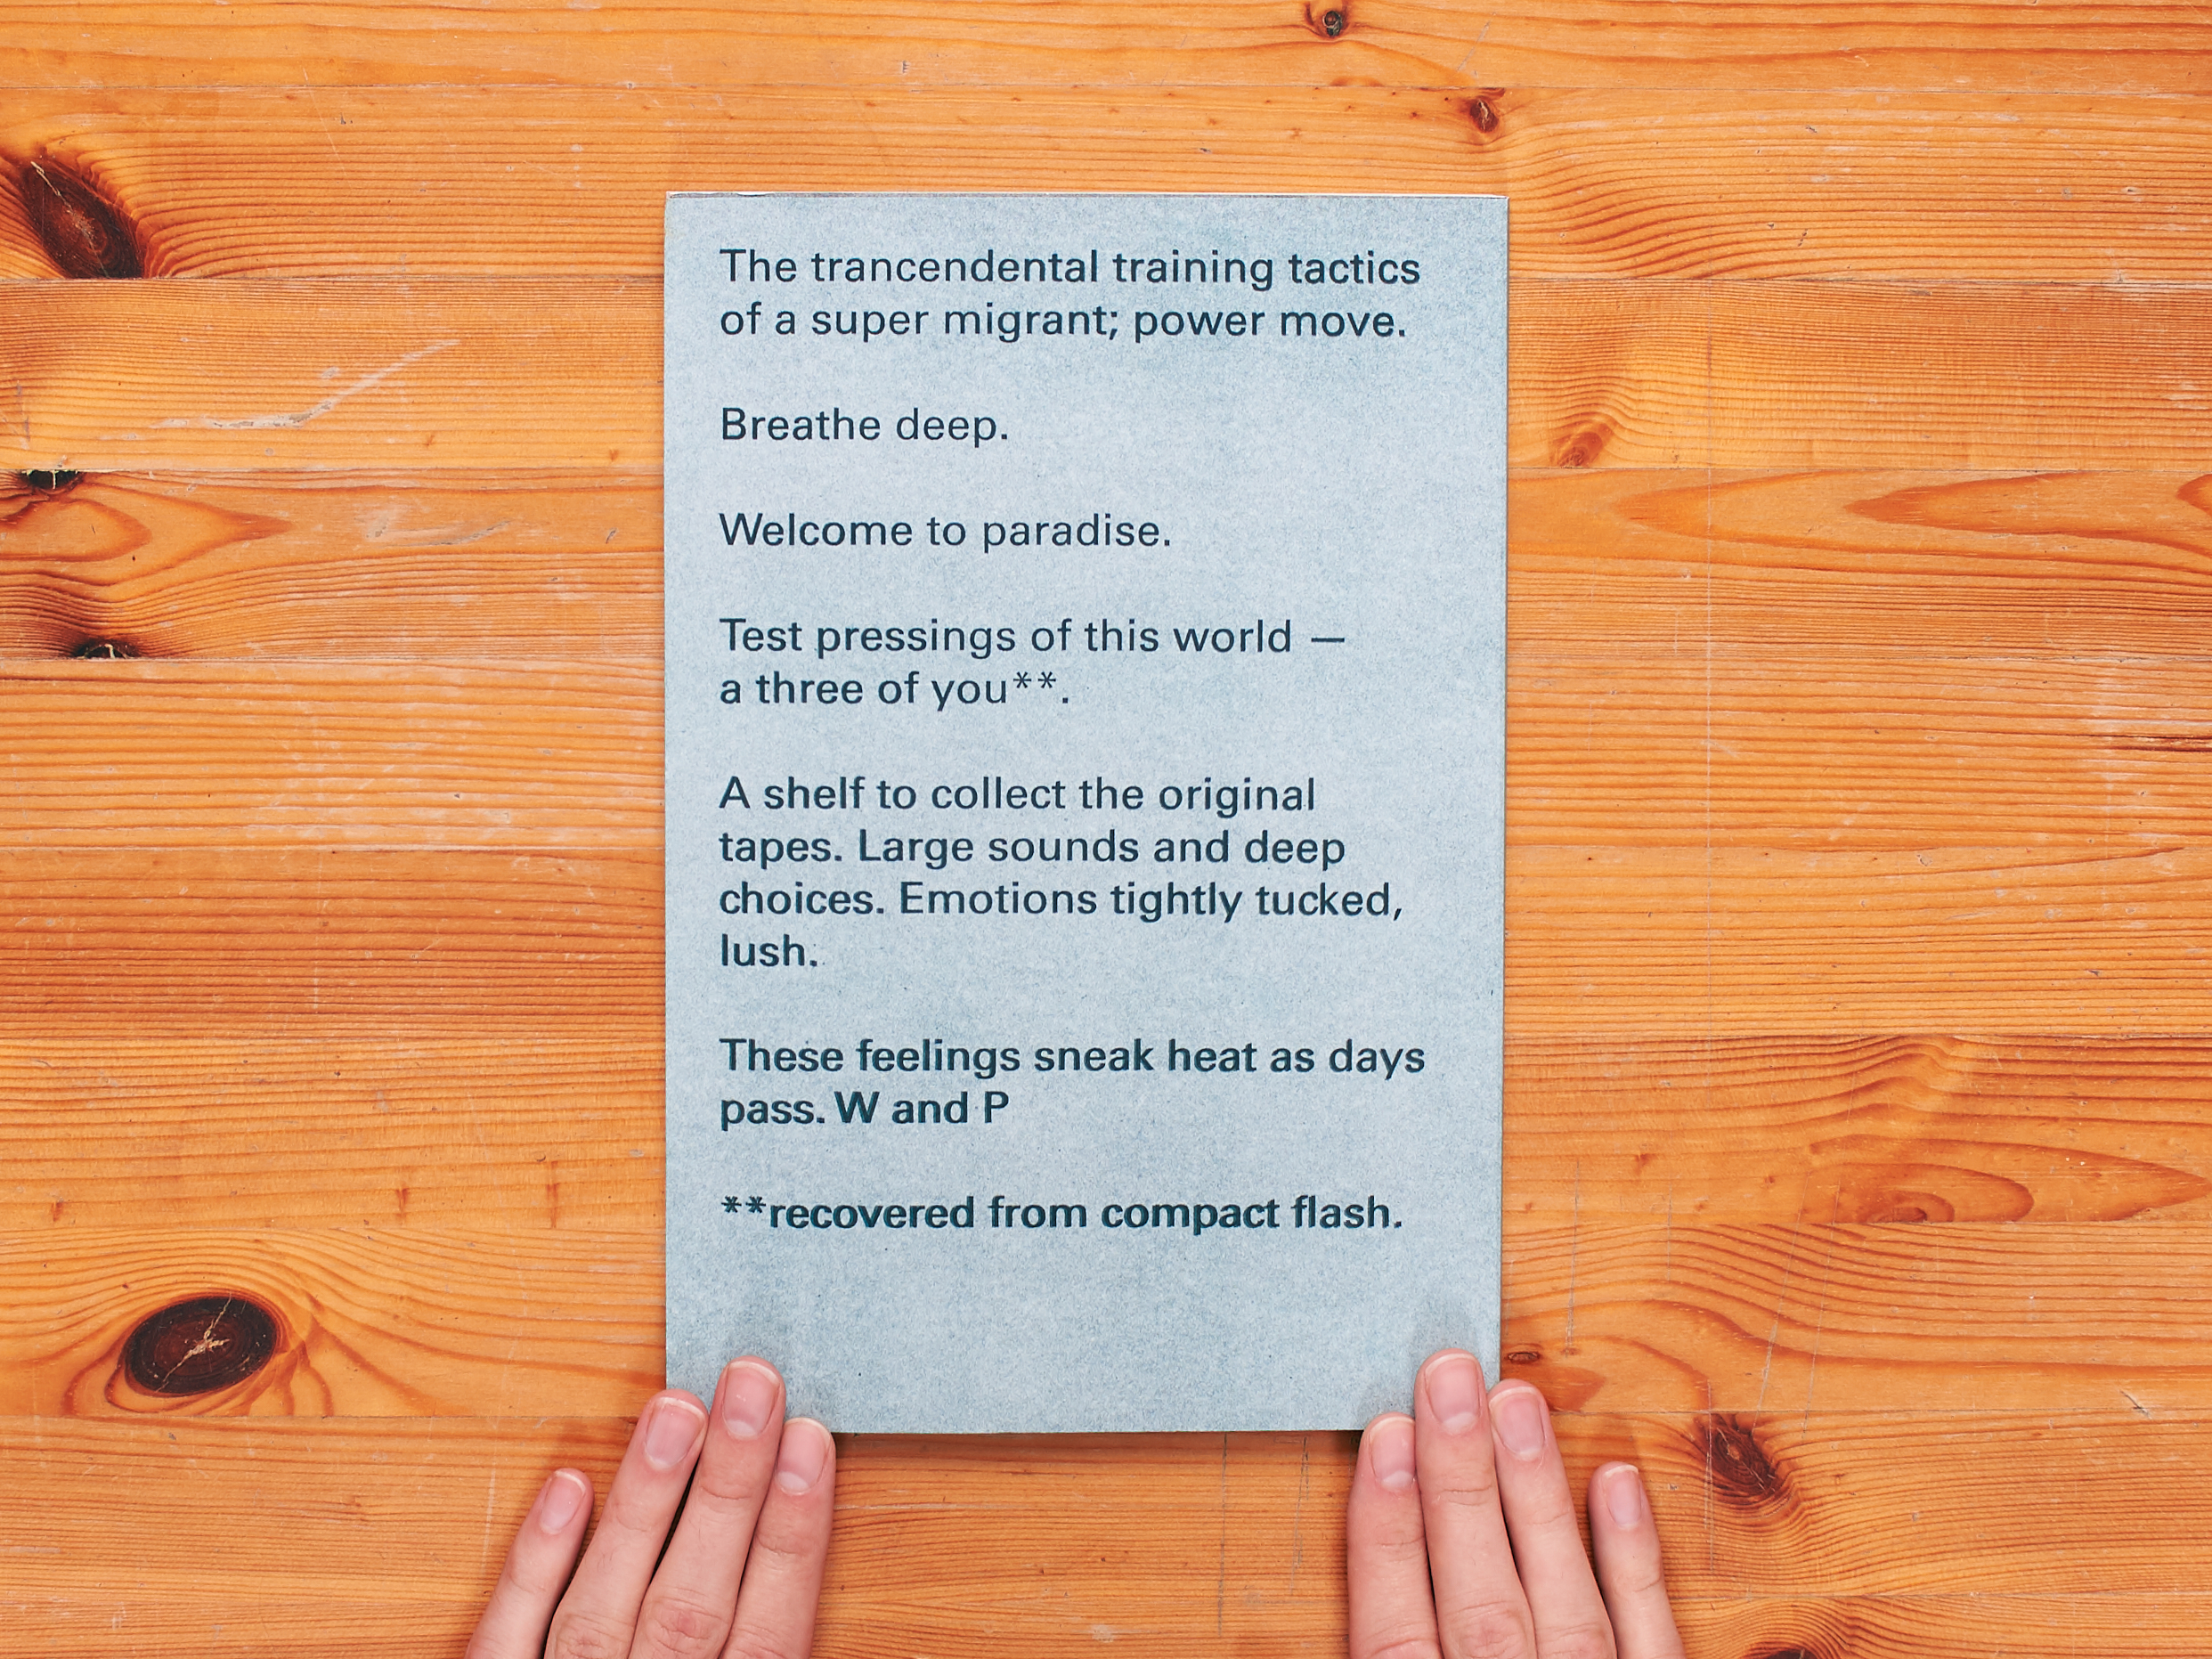 The trancendental training tactics
of a super migrant; power move.
Breathe deep.
Welcome to paradise.
Test pressings of this world —
a three of you**.
A shelf to collect the original
tapes. Large sounds and deep
choices. Emotions tightly tucked,
lush.
These feelings sneak heat as days
pass. W and P
**recovered from compact flash.